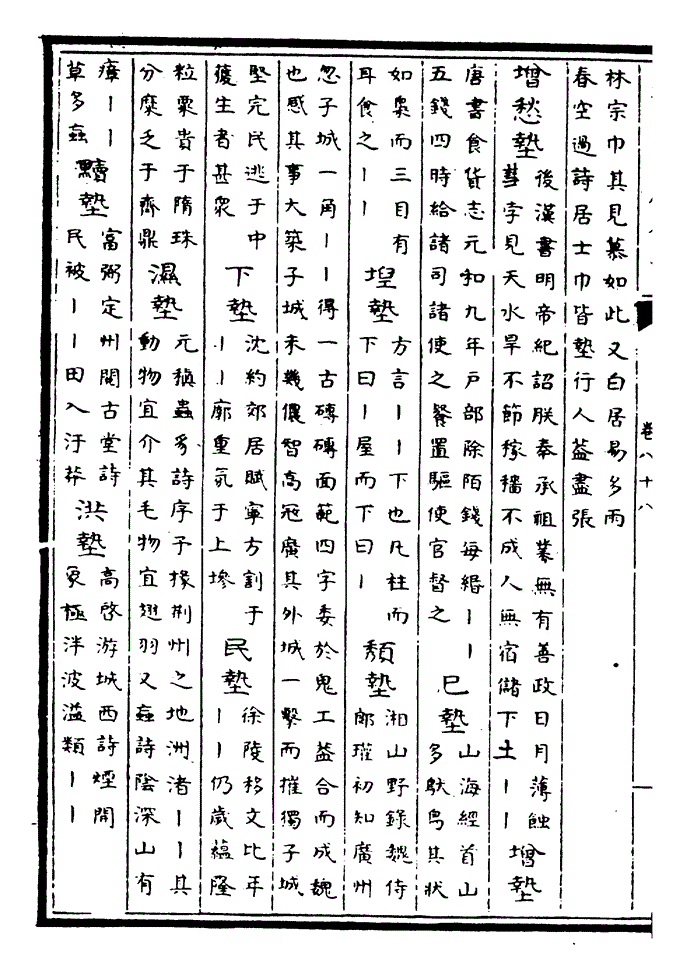 林宗巾其見慕如此又白居易多雨
春空過詩居士巾皆墊行人葢盡張
增愁墊
後漢書明帝紀詔朕奉承祖業無有善政日月薄蝕
彗孛見天水旱不節稼穡不成人無宿儲下土丨丨
增墊
唐書食貨志元和九年戶部除陌錢每緡丨丨
五錢四時給諸司諸使之餐置驅使官督之
巳墊
山海經首山
多䭾鳥其狀
如梟而三目有
耳食之丨丨
埕墊
方言丨丨下也凡柱而
下曰丨屋而下曰丨
頽墊
湘山野錄魏侍
郎瓘初知廣州
忽子城一角丨丨得一古磚磚面範四字委於鬼工葢合而成魏
也感其事大築子城未幾儂智高冦廣其外城一擊而摧獨子城
堅完民逃于中
獲生者甚衆
下墊
沈約郊居賦寧方割于
丨丨廓重氛于上墋
民墊
徐陵移文比年
丨丨仍歲蘊隆
粒粟貴于隋珠
分糜乏于齊鼎
濕墊
元稹蟲豸詩序子掾荆州之地洲渚丨丨其
動物宜介其毛物宜翅羽又蝱詩陰深山有
瘴丨丨
草多蝱
黷墊
富弼定州閱古堂詩
民被丨丨田入汙莽
洪墊
高啓游城西詩煙開
象極泮波溢類丨丨
卷八十八